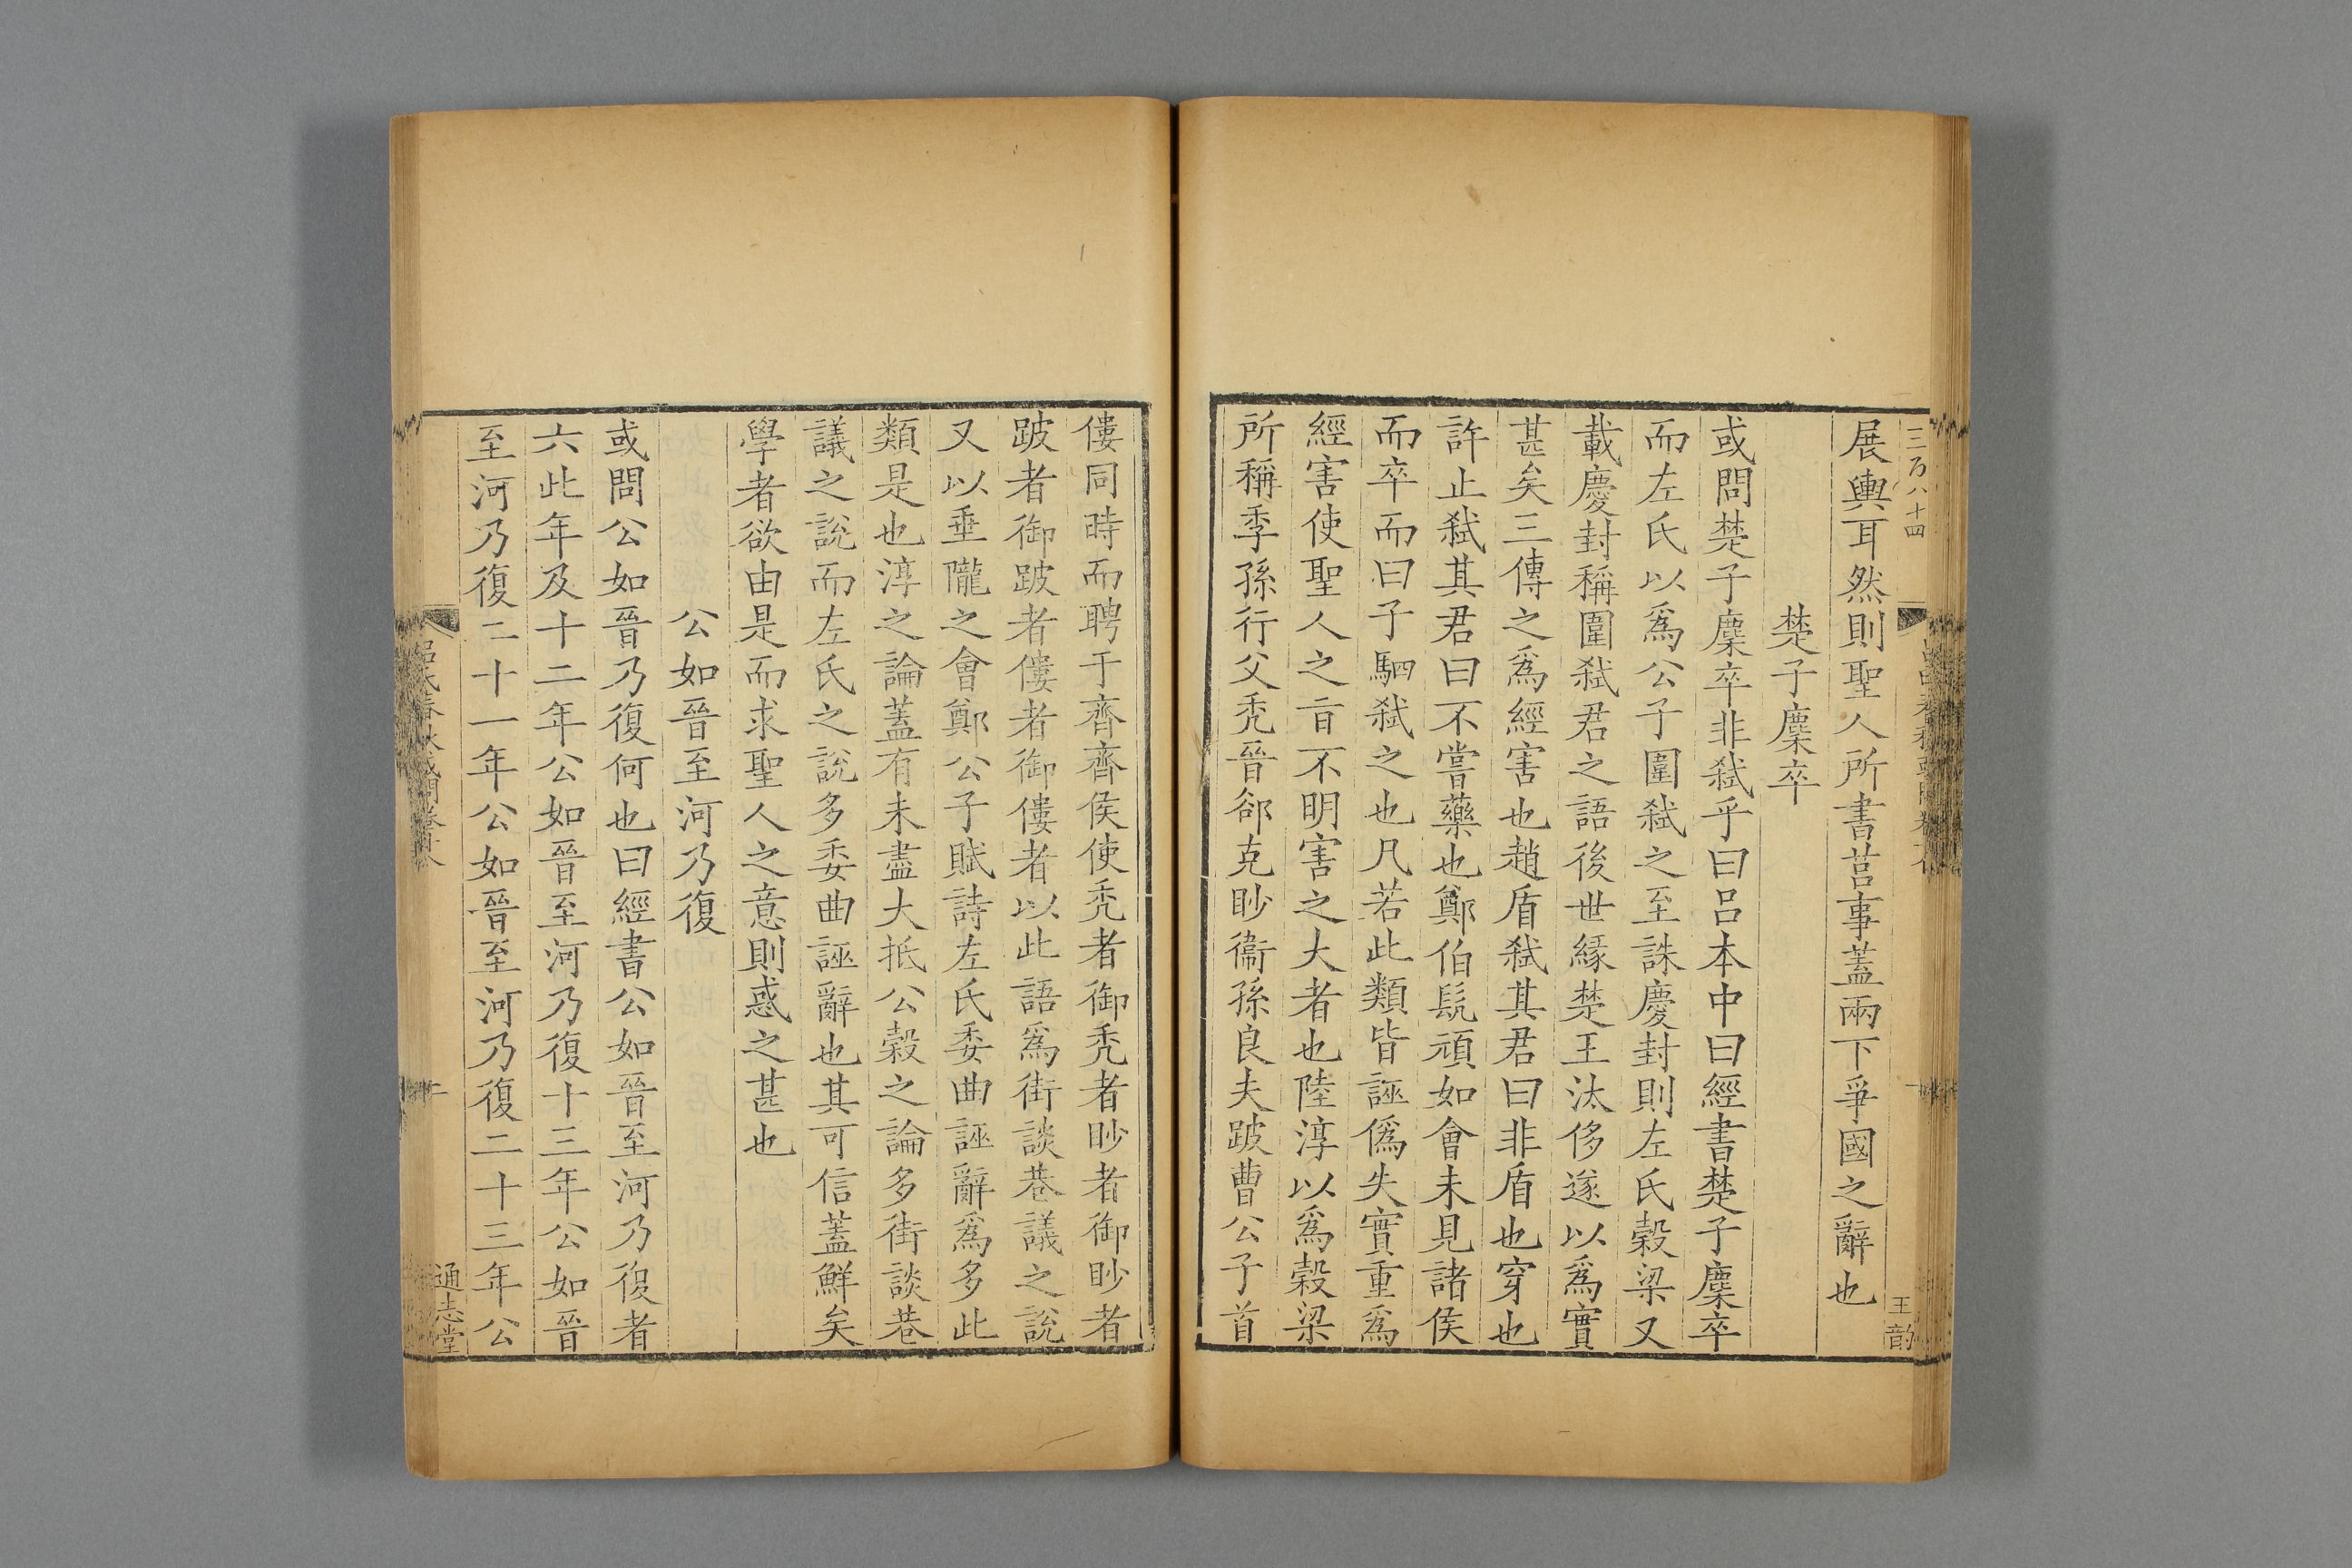 三百八十四
展輿耳然則聖人所書莒事蓋兩下爭國之辭也
楚子麇卒
或問楚子麇卒非弑乎曰呂本中曰經書楚子麇卒
而左氏以爲公子圍弑之至誅慶封則左氏穀梁又
載慶封稱圍弑君之語後世緣楚王汰侈遂以爲實
甚矣三傳之爲經害也趙盾弑其君曰非盾也穿也
許止弑其君曰不嘗藥也鄭伯髡頑如會未見諸侯
而卒而曰子駟弑之也凡若此類皆誣僞失實重爲
經害使聖人之旨不明害之大者也陸淳以爲穀梁
所稱季孫行父秃晉郤克眇衞孫良夫跛曹公子首
王
僂同時而聘于齊齊侯使秃者御秃者眇者御眇者
跛者御跛者僂者御僂者以此語爲街談巷議之說
又以垂隴之會鄭公子賦詩左氏委曲誣辭爲多此
類是也淳之論蓋有未盡大抵公穀之論多街談巷
議之說而左氏之說多委曲誣辭也其可信蓋鮮矣
學者欲由是而求聖人之意則惑之甚也
公如晉至河乃復
或問公如晉乃復何也曰經書公如晉至河乃復者
六此年及十二年公如晉至河乃復十三年公如晉
至河乃復二十一年公如晉至河乃復二十三年公
通志堂